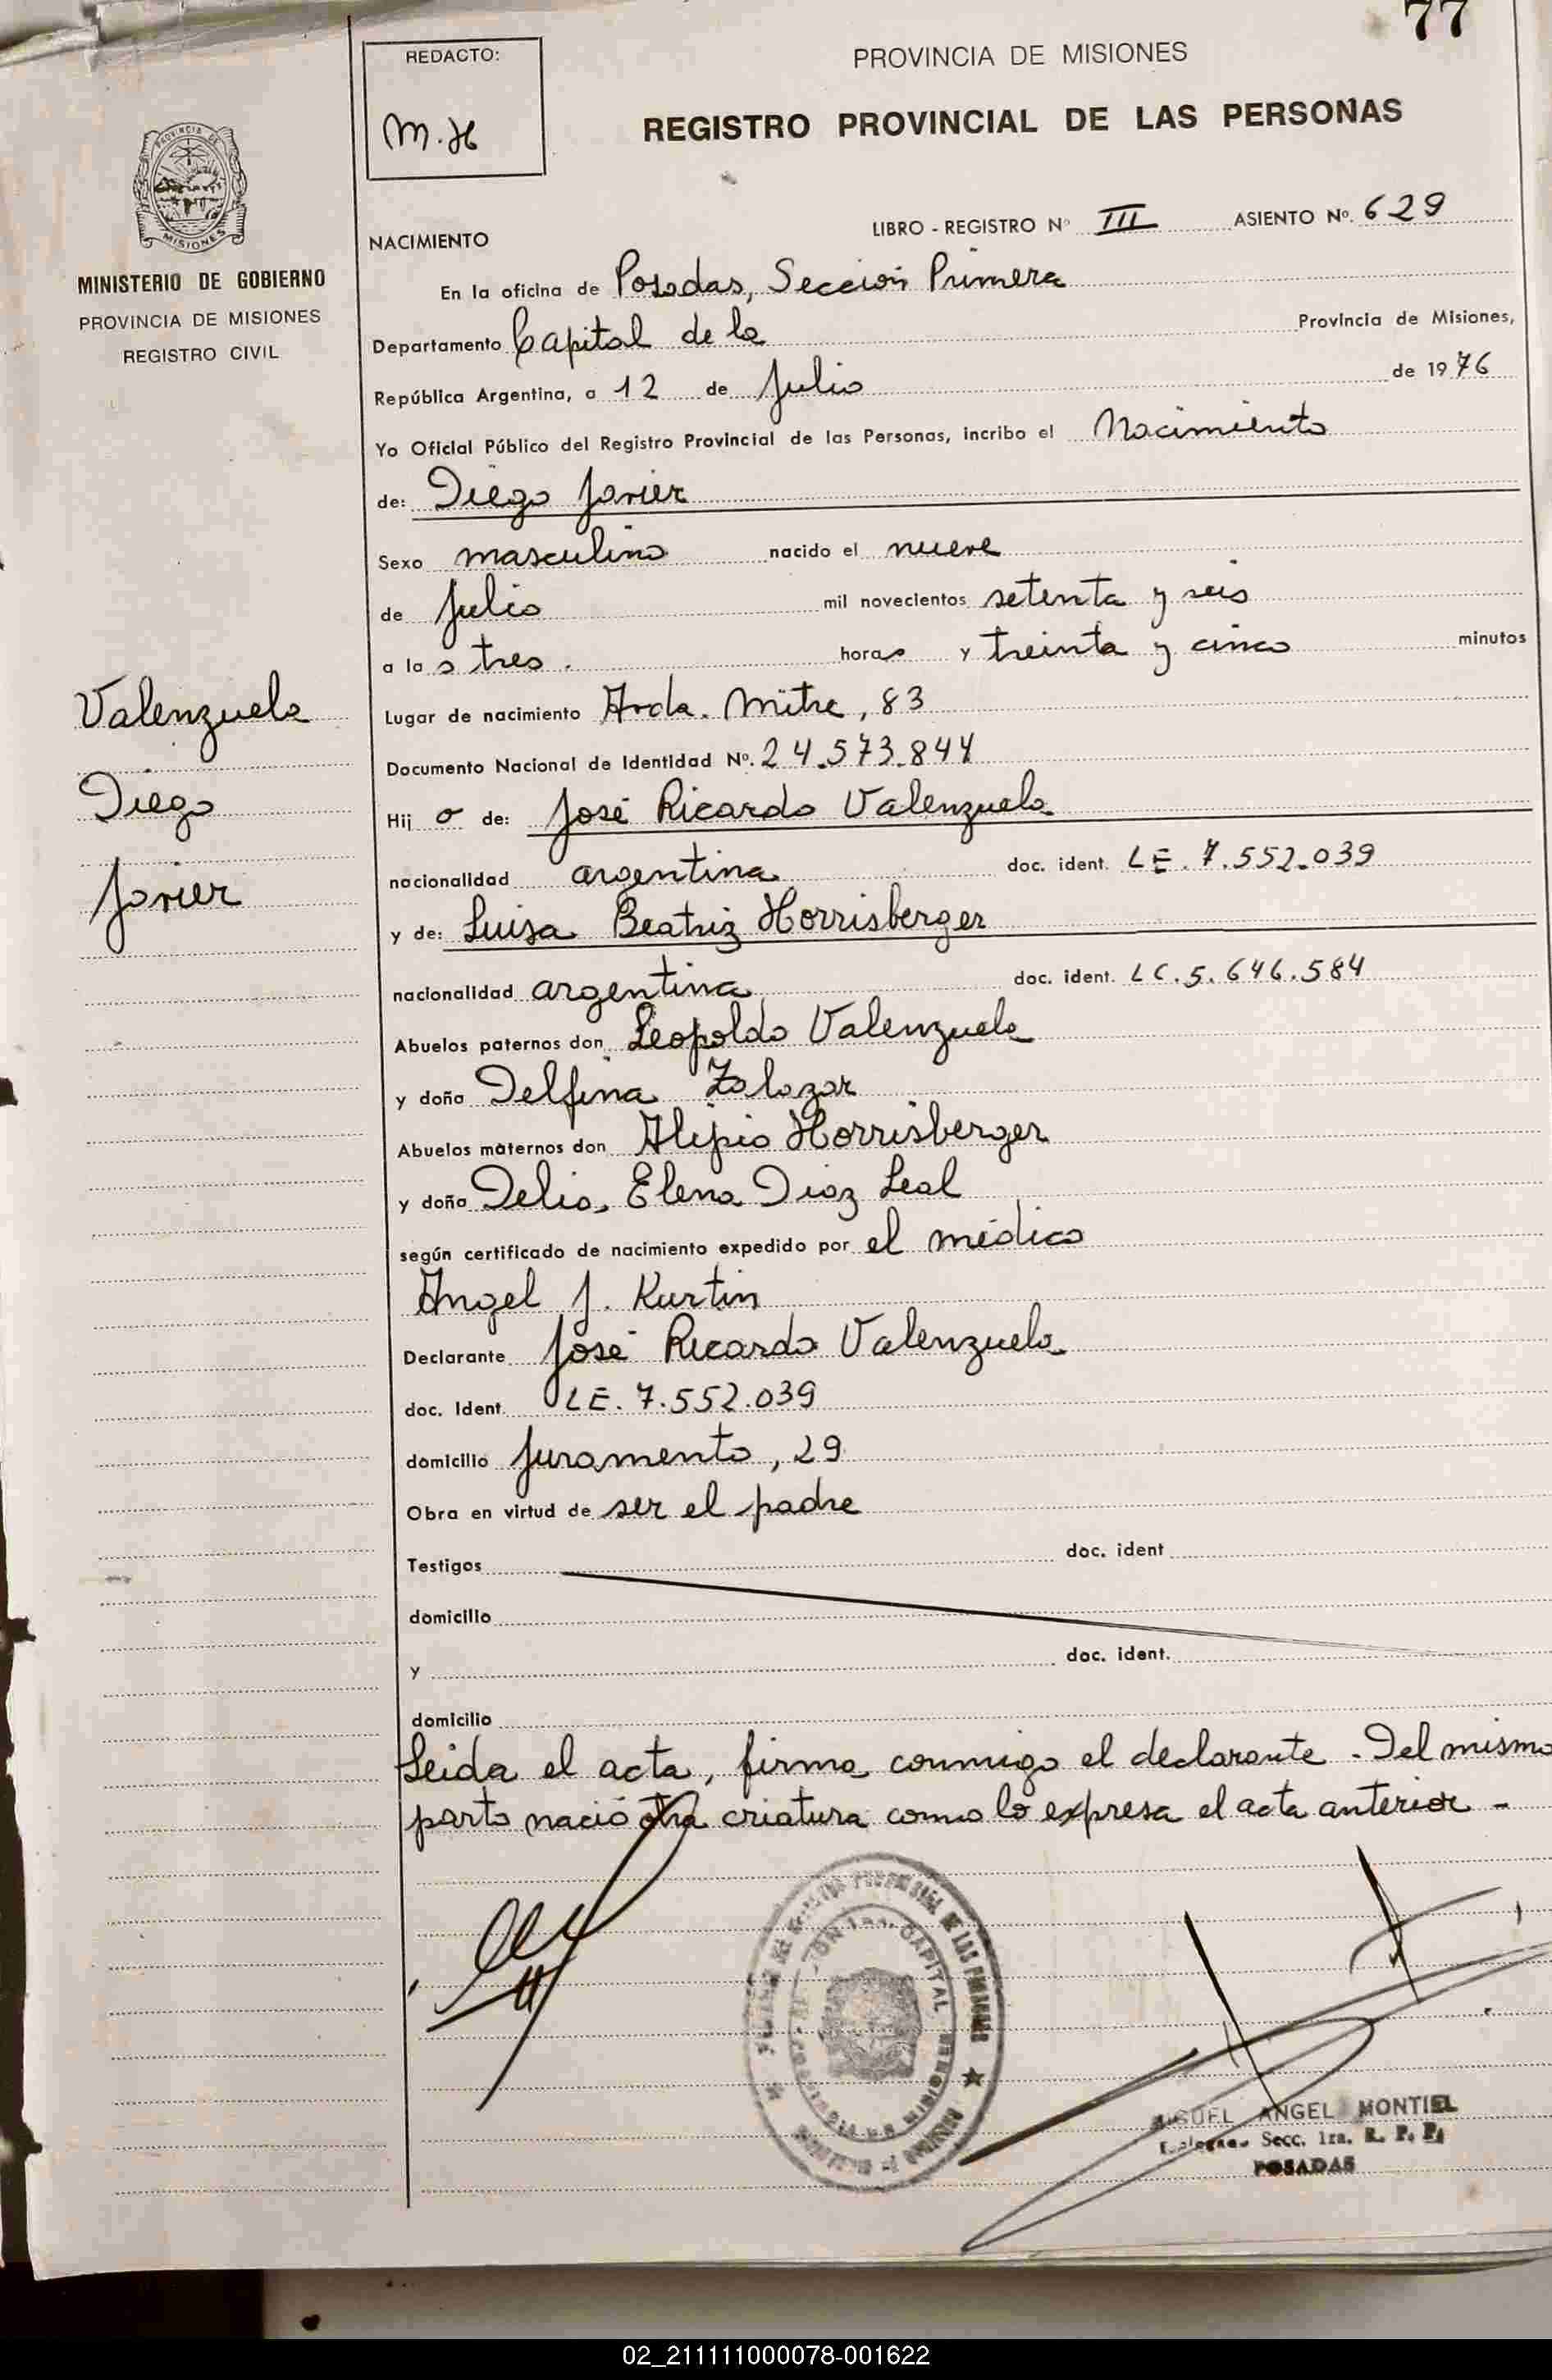 77
REDACTO:
M.H
PROVINCIA DE MISIONES
REGISTRO PROVINCIAL DE LAS PERSONAS
PROVINCIA DE
MISIONES
MINISTERIO DE GOBIERNO
PROVINCIA DE MISIONES
REGISTRO CIVIL
NACIMIENTO
LIBRO - REGISTRO Nº III ASIENTO Nº. 629
En la oficina de Posadas, Sección Primera
Departamento Capital de la Provincia de Misiones,
República Argentina, a 12 de Julio de 1976
Yo Oficial Público del Registro Provincial de las Personas, incribo el Nacimiento
de: Diego Javier
Sexo masculino nacido el nueve
de Julio mil novecientos setenta y seis
a las tres. horas y treinta y cinco minutos
Lugar de nacimiento Avda. Mitre, 83
Documento Nacional de Identidad Nº. 24.573.844
Hijo de: José Ricardo Valenzuela
nacionalidad argentina doc. ident. LE. 7.552.039
y de: Luisa Beatriz Horrisberger
nacionalidad argentina doc. ident. LC. 5.646.584
Abuelos paternos don Leopoldo Valenzuela
y doña Delfina Zalazar
Abuelos maternos don Alipio Horrisberger
y doña Delia, Elena Diaz Leal
según certificado de nacimiento expedido por el médico
Angel J. Kurtin
Declarante José Ricardo Valenzuela
doc. Ident. LE. 7.552.039
domicilio Juramento, 29
Obra en virtud de ser el padre
Testigos doc. ident
domicilio
y doc. ident.
domicilio
Leida el acta, firma conmigo el declarante. Del mismo
parto nació otra criatura como lo expresa el acta anterior -
Valenzuela
Diego
Javier
CAPITAL
MIGUEL ANGEL MONTIEL
Secc. 1ra. R. P. P.
POSADAS
02_211111000078-001622